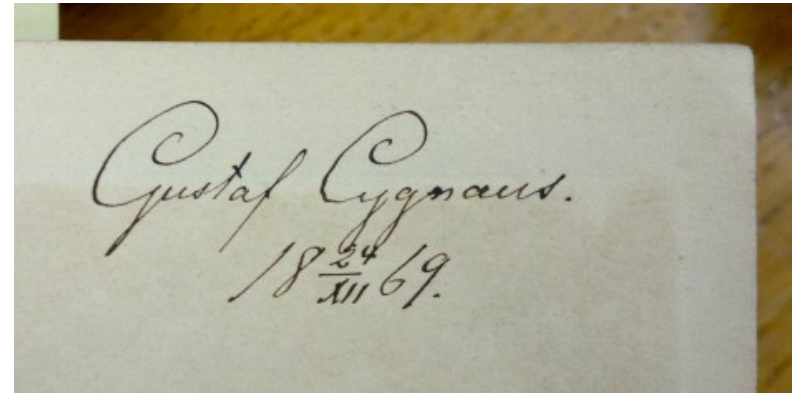 Gustaf Cygnaeus.
18 24/XII 69.